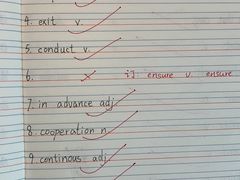 4. exit v.
5. conduct v.
6. 订 ensure v. ensure
7. in advance adj.
8. cooperation n.
9. continous adj